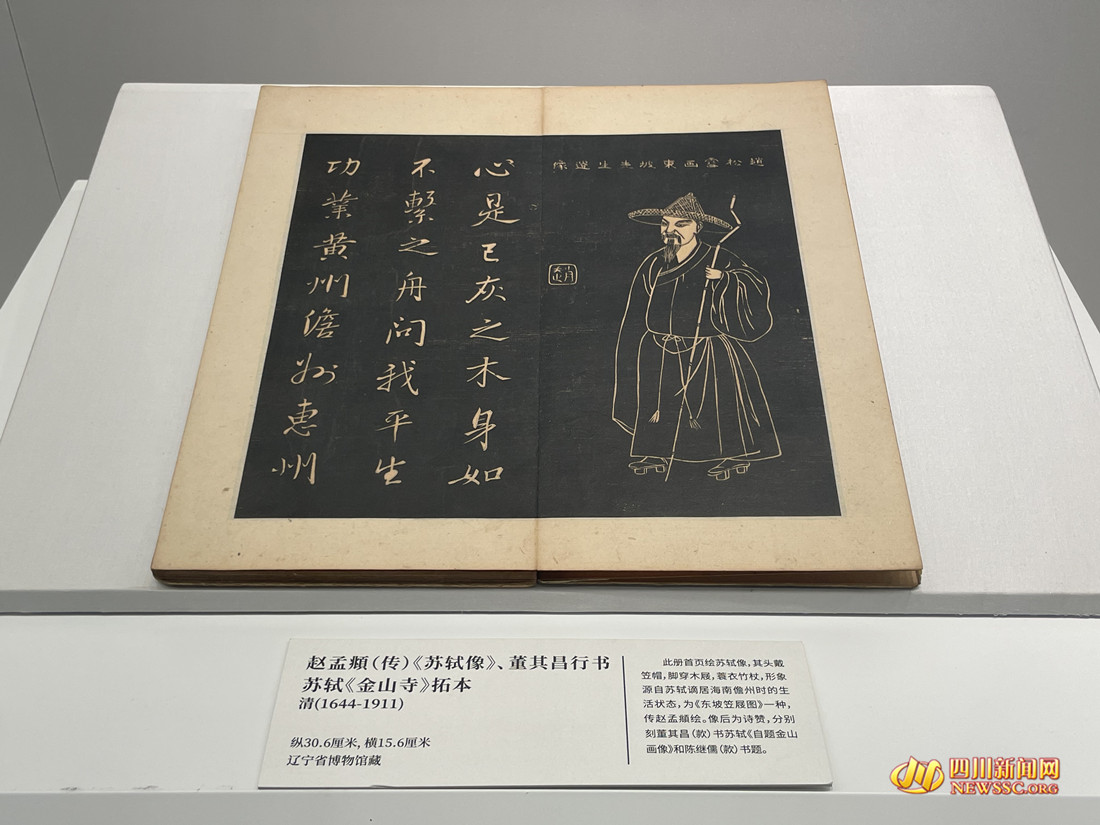 趙松雪画東坡先生遺像
心是已灰之木身如
不繫之舟問我平生
功業黄州儋州惠州
赵孟頫(传)《苏轼像》、董其昌行书
苏轼《金山寺》拓本
清(1644-1911)
纵30.6厘米, 横15.6厘米
辽宁省博物馆藏
此册首页绘苏轼像,其头戴
笠帽,脚穿木屐,蓑衣竹杖,形象
源自苏轼谪居海南儋州时的生
活状态,为《东坡笠屐图》一种,
传赵孟頫绘。像后为诗赞,分别
刻董其昌(款)书苏轼《自题金山
画像》和陈继儒(款)书题。
四川新闻网
NEWSSC.ORG